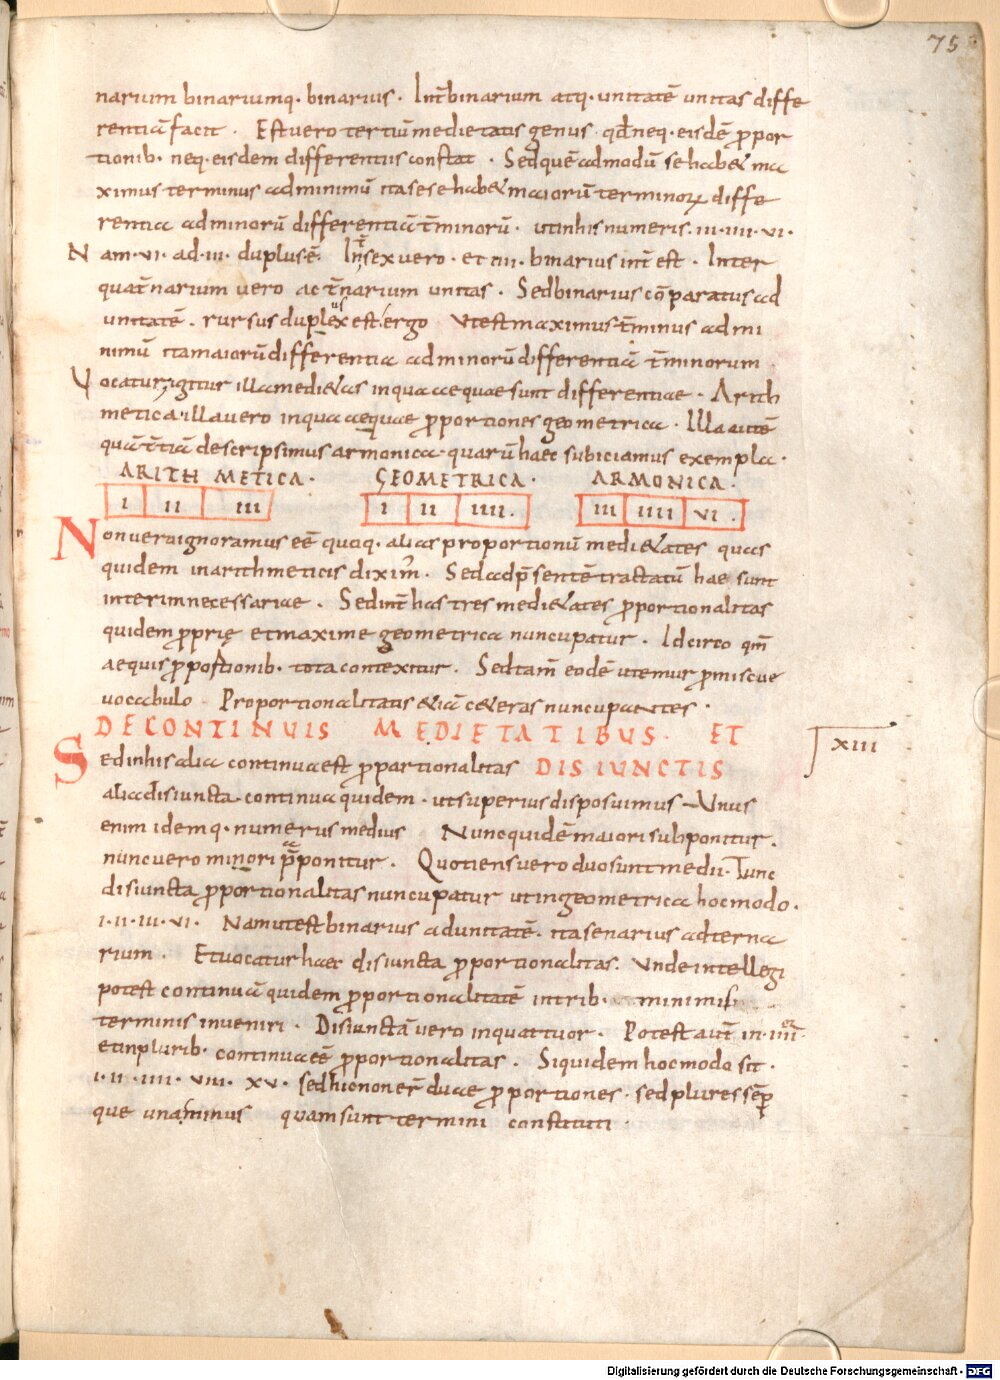 75
narium binariumq· binarius · Int̄ binarium atq· unitatē unitas diffe
rentiā facit · Est vero tertiū medietatis genus · qđ neq· eisdē ꝓpor
tionib· neq· eisdem differentiis constat · Sed quēadmodū se hab& ma
ximus terminus ad minimū ita sese hab& maiorū terminoꝝ diffe
rentia ad minorū differentiā t̄minorū · ut in his numeris · iii · iiii · vi ·
Nam · vi · ad · iii · duplus ē · Int̄ sex vero · et iiii · binarius int̄ est · Inter
quat̄narium vero ac t̄narium unitas · Sed binarius cōparatus ad
unitatē · rursus duplex est · ergo Ut est maximus t̄minus ad mi
nimū ita maiorū differentia ad minorū differentiā t̄minorum
Vocatur igitur illa medi&as in qua aequae sunt differentiae · Arith
metica · illa vero in qua aequae ꝓportiones geometrica · Illa autē
quā t̄tiā descripsimus armonica · quarū haec subiciamus exempla ·
ARITHMETICA · GEOMETRICA · ARMONICA ·
I II III I II IIII · III IIII VI ·
Non vero ignoramus eē quoq· alias proportionū medi&ates quas
quidem in arithmeticis diximꝰ · Sed ad p̄sentē tractatū hae sunt
interim necessariae · Sed int̄ has tres medi&ates ꝓportionalitas
quidem ꝓprię et maxime geometrica nuncupatur · Idcirco qm̄
aequis ꝓportionib· tota contexitur · Sed tam̄ eodē utemur ꝓmiscue
vocabulo Proportionalitatis &iā c&eras nuncupantes ·
DE CONTINUIS MEDIETATIBUS · ET
xiii
Sed in his alia continua est ꝓportionalitas DISIUNCTIS
alia disiuncta · continua quidem · ut superius disposuimus Unus
enim idemq· numerus medius Nunc quidē maiori subponitur ·
nunc vero minori p̄ponitur · Quotiens vero duo sunt medii · Tunc
disiuncta ꝓportionalitas nuncupatur ut in geometrica hoc modo ·
i · ii · iii · vi · Nam ut est binarius ad unitatē · ita senarius ad terna
rium · Et vocatur haec disiuncta ꝓportionalitas · Unde intellegi
potest continuā quidem ꝓportionalitatē in trib· minimis
terminis inveniri · Disiunctā vero in quattuor · Potest aut̄ in · iiii
et in plurib· continua eē ꝓportionalitas · Siquidem hoc modo sit ·
i · ii · iiii · viii · xv · sed hic non er̄ duae ꝓportiones · sed plures sēp
que una minus quam sunt termini constituti ·
Digitalisierung gefördert durch die Deutsche Forschungsgemeinschaft - DFG